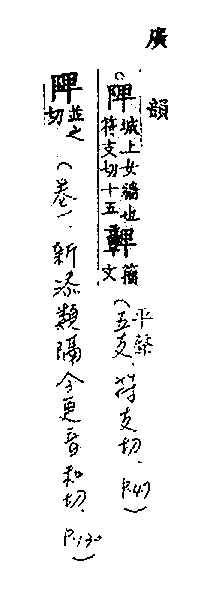 廣韻
陴城上女牆也符支切十五𩏂籀文(平聲五支、符支切、P.47)
陴並之切(卷一、新添類隔今更音和切、P.130)